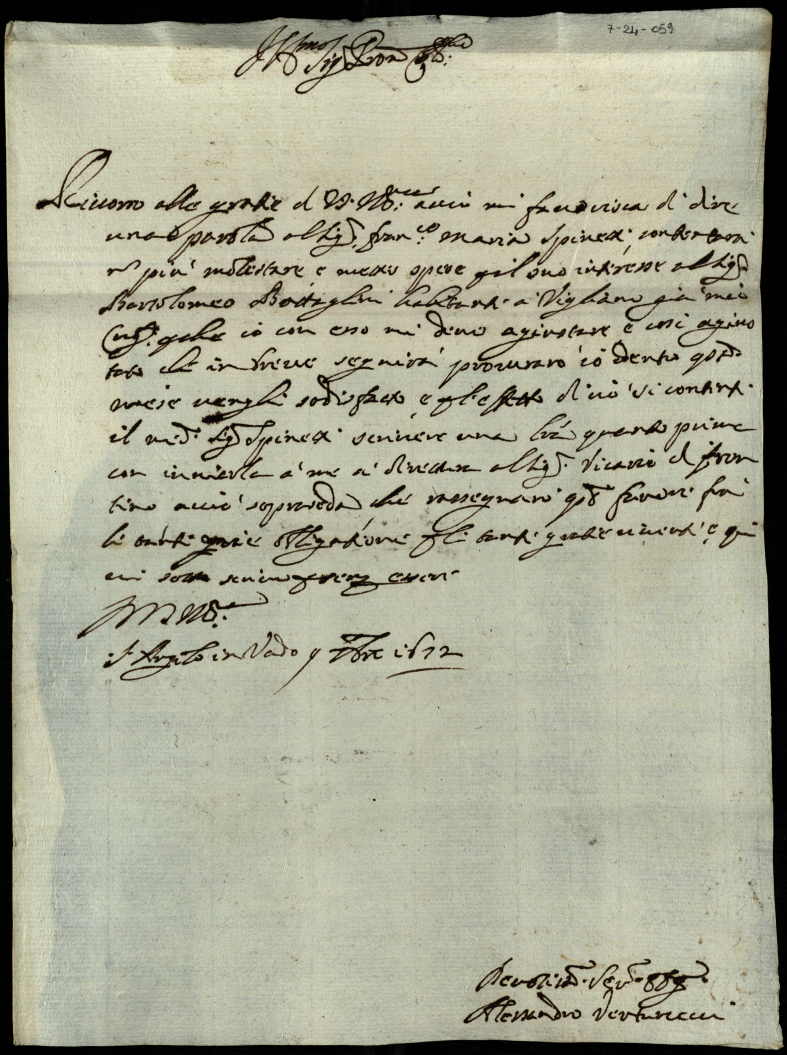 7-24-059
Ill.mo Sig.r Pron
Ricorro alle gratie di V.S. Ill.ma acciò mi favorisca di dire
una parola al Sig.r Fran.co Maria Spinetti contentarsi
più molestare e metter spese p il suo interesse al Sig.r
Bartolomeo Battaglini habitante a Vigliano già mio
io con esso mi devo agiustare e così agius
tato che in breve seguirà procurarò io dentro q.to
mese venghi sodisfatto e p l'effetto di ciò si contenti
il med.o Sig.r Spinetti scrivere una l'ra quanto prima
con inviarla a me a direttura al Sig.r Vicario di Fron
tino acciò sopraseda che rassegnarò q.to favore frà
le tante mie obligationi p le tante gratie e qui
mi
D V S Ill.ma
S. Angelo in Vado 9 7bre 1672
Devotis.mo Ser.re Oblig.mo
Alessandro Venturucci